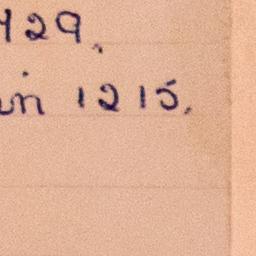 429.
un 1215.